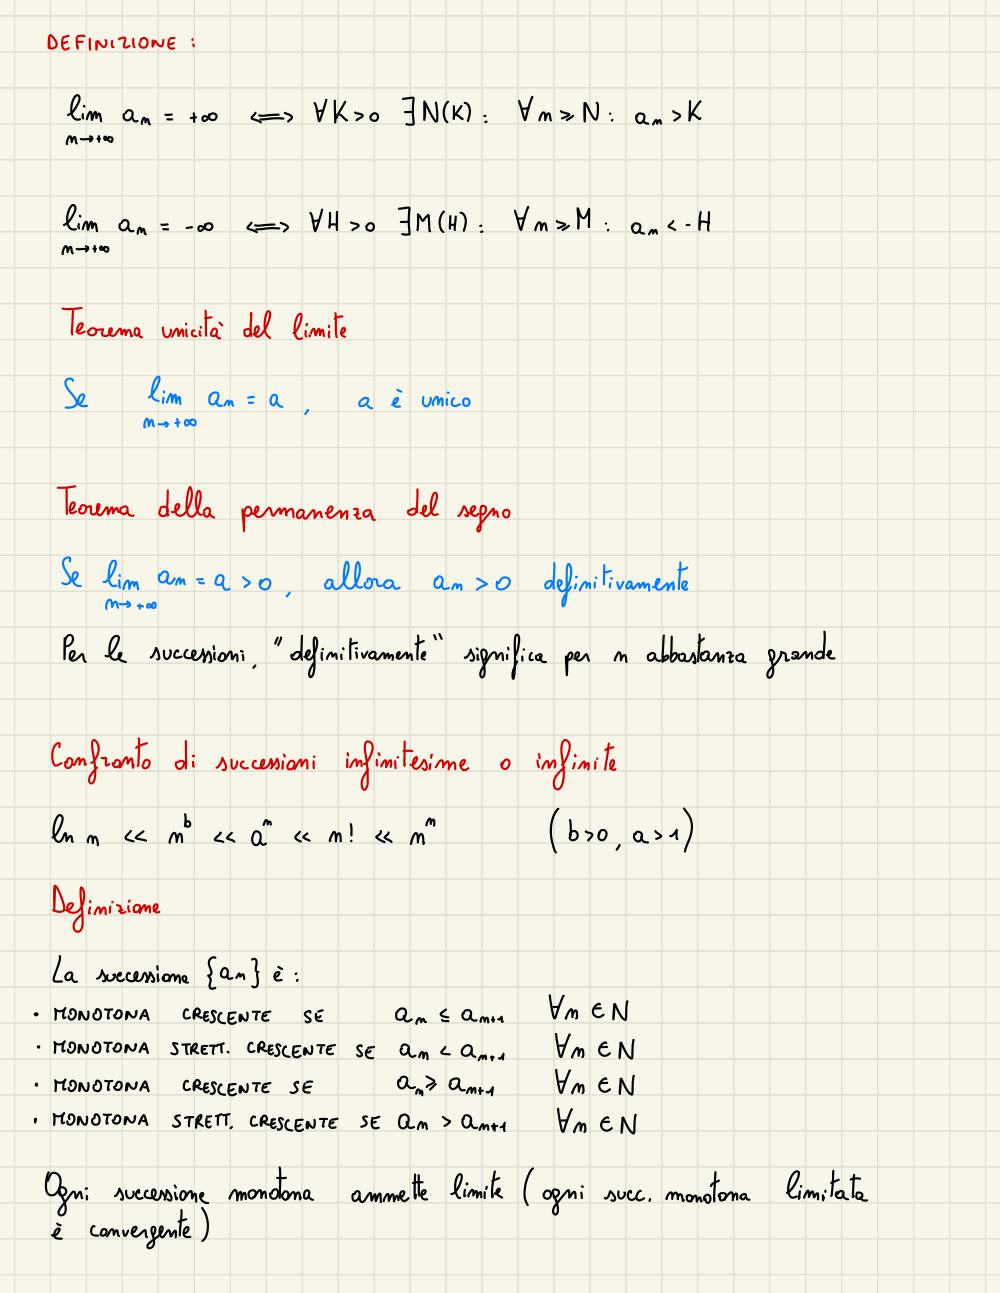 DEFINIZIONE :
lim aₙ = +∞ ⟺ ∀K>0 ∃N(K) : ∀n⩾N : aₙ>K
n→+∞
lim aₙ = -∞ ⟺ ∀H>0 ∃M(H) : ∀n⩾M : aₙ<-H
n→+∞
Teorema unicità del limite
Se lim aₙ = a , a è unico
n→+∞
Teorema della permanenza del segno
Se lim aₙ = a >0 , allora aₙ >0 definitivamente
n→+∞
Per le successioni, "definitivamente" significa per n abbastanza grande
Confronto di successioni infinitesime o infinite
ln n << n^b << a^n << n! << n^n (b>0 , a>1)
Definizione
La successione {aₙ} è :
• MONOTONA CRESCENTE SE aₙ ≤ aₙ₊₁ ∀n ∈ N
• MONOTONA STRETT. CRESCENTE SE aₙ < aₙ₊₁ ∀n ∈ N
• MONOTONA CRESCENTE SE aₙ ⩾ aₙ₊₁ ∀n ∈ N
• MONOTONA STRETT. CRESCENTE SE aₙ > aₙ₊₁ ∀n ∈ N
Ogni successione monotona ammette limite ( ogni succ. monotona limitata
è convergente )